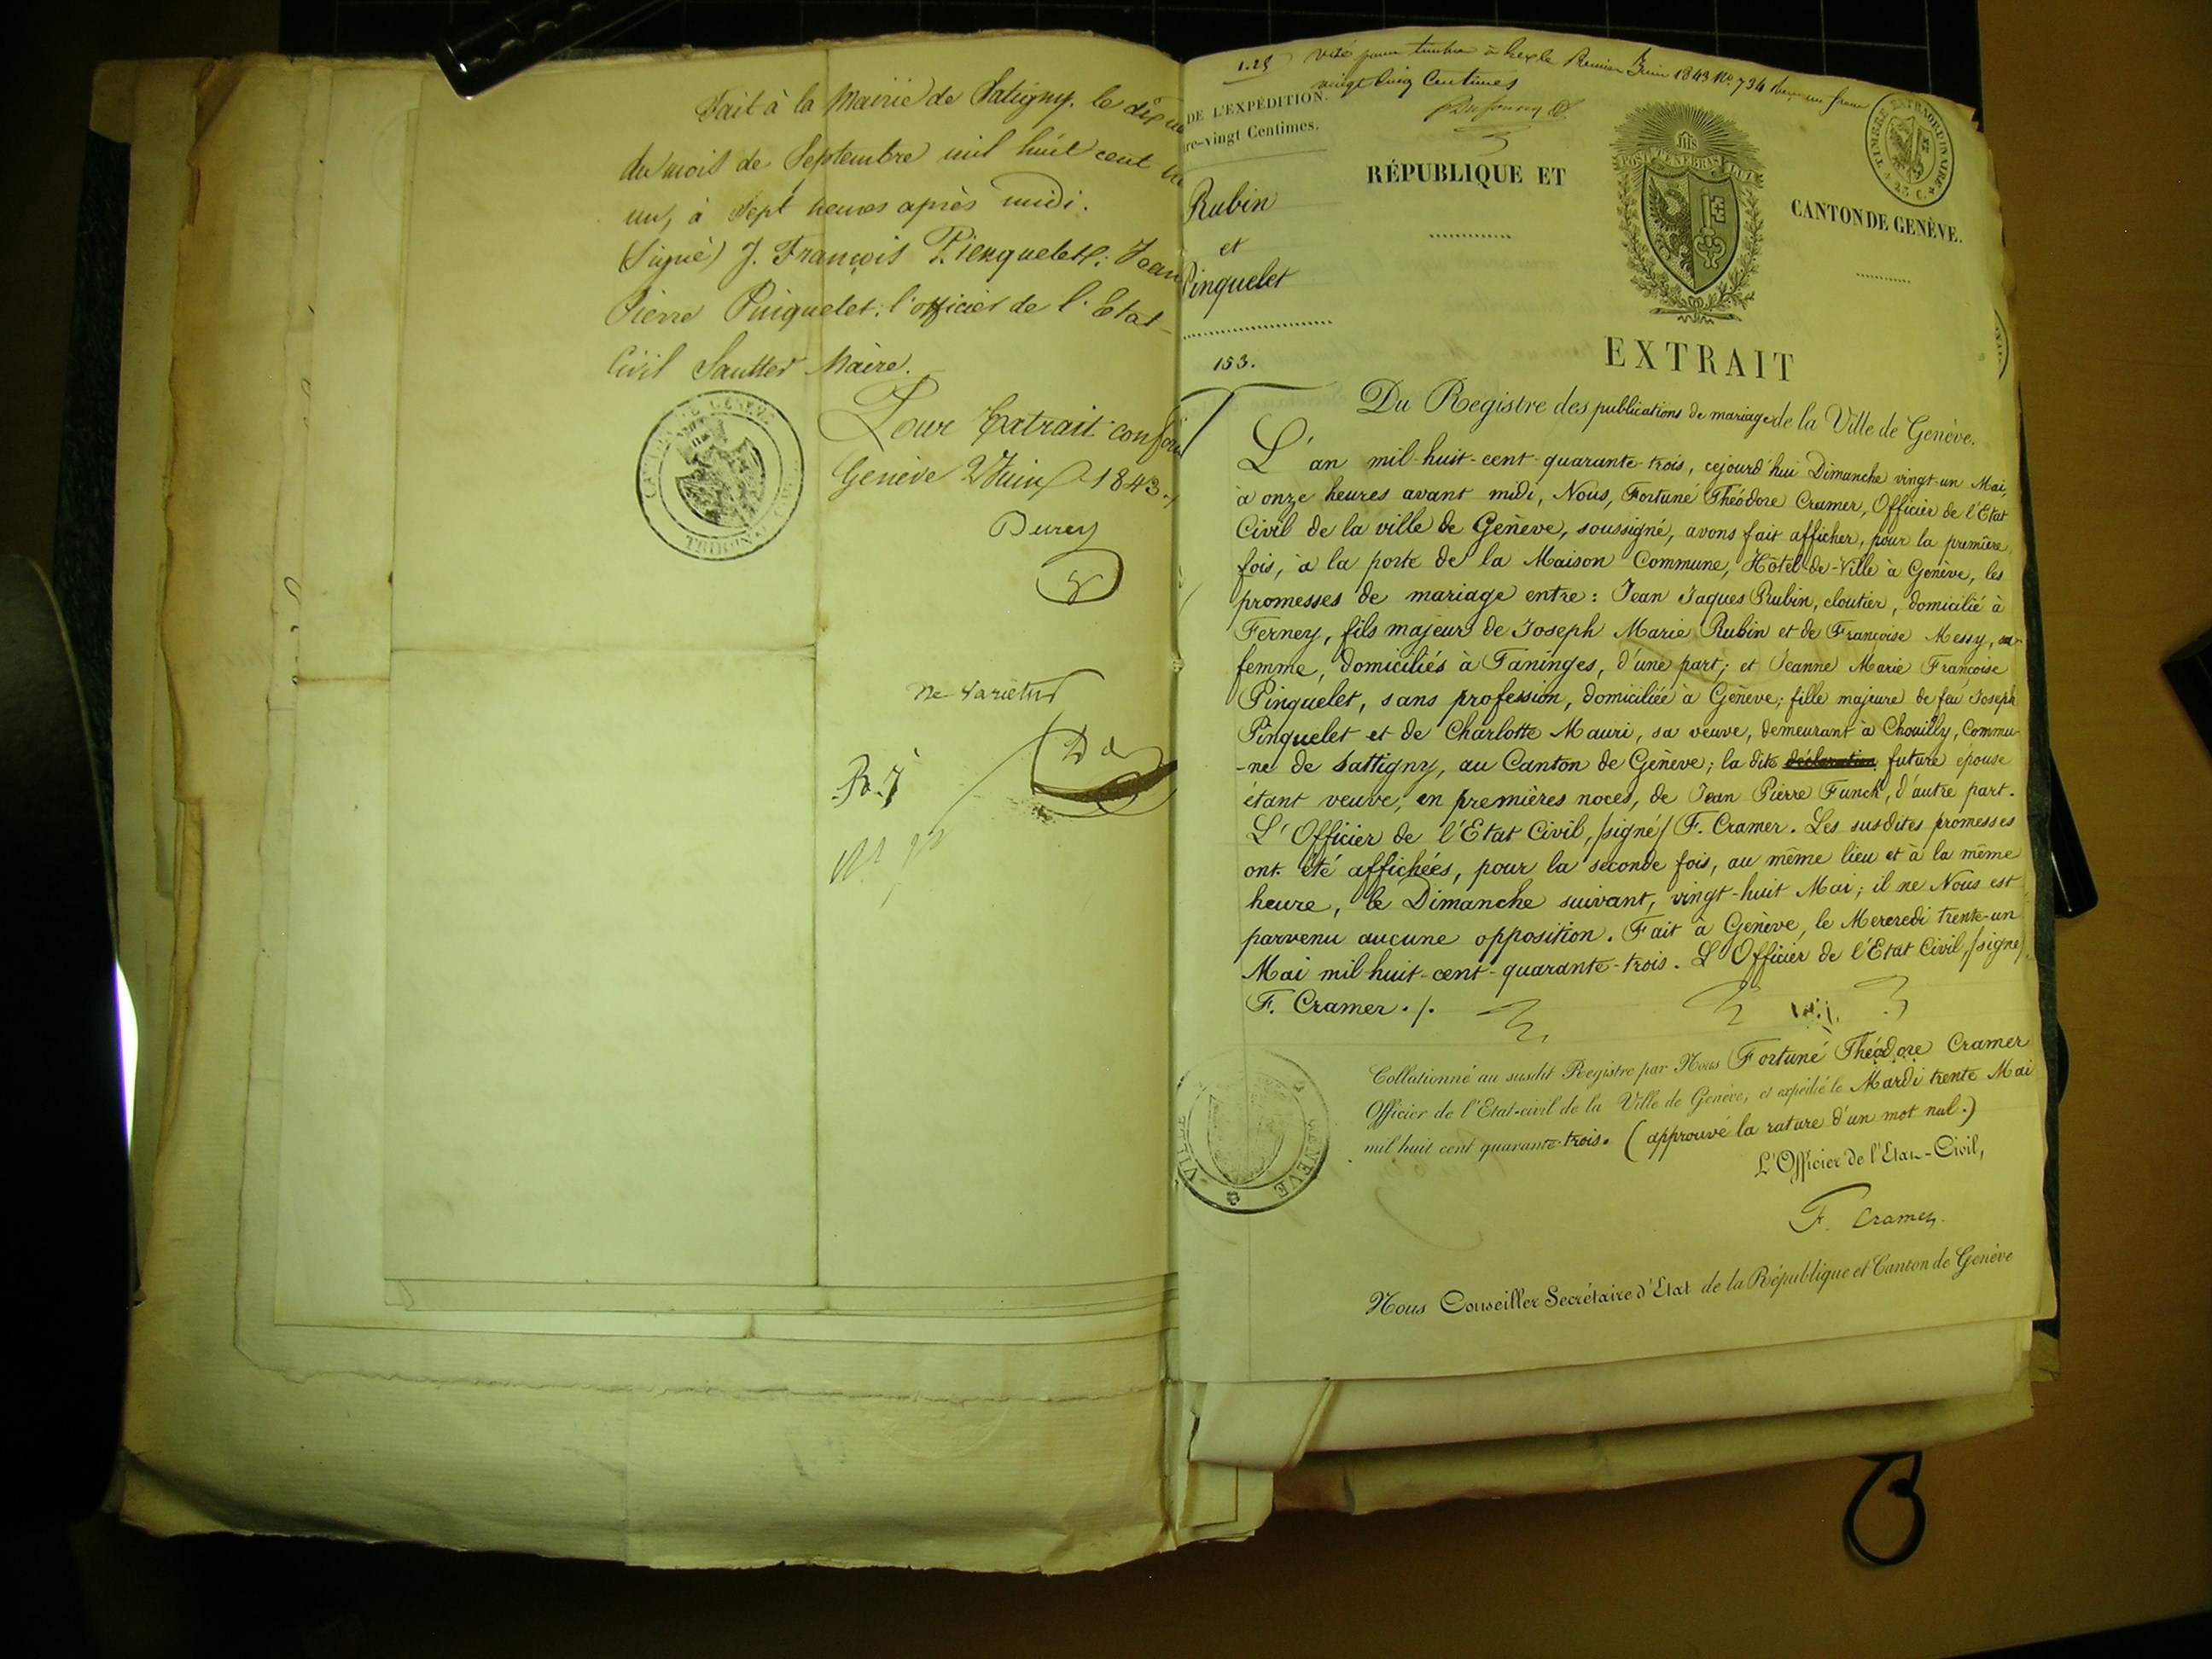 Fait à la Mairie de Satigny, le
du mois de Septembre mil huit cent
un, à Sept heures après midi.
(Signé) J. François Pienquelet: Jean
Pierre Pinquelet: l'officier de l'Etat-
Civil Sautter Maire.
Pour Extrait
Genève 2 Juin 1843.
Ne varietur
1.25 visé pour timbre à Gex le Premier Juin 1843 No. 734 un franc
vingt Cinq Centimes
DE L'EXPÉDITION.
re-vingt Centimes.
Rubin
et
Pinquelet
153.
RÉPUBLIQUE ET
POST TENEBRAS LUX
CANTON DE GENÈVE.
TIMBRE EXTRAORDINAIRE
25 C.
EXTRAIT
Du Registre des publications de mariage de la Ville de Genève.
L'an mil-huit-cent-quarante-trois, cejourd'hui Dimanche vingt-un Mai,
à onze heures avant midi, Nous, Fortuné Théodore Cramer, Officier de l'Etat
Civil de la ville de Genève, soussigné, avons fait afficher, pour la première
fois, à la porte de la Maison Commune, Hôtel-de-Ville à Genève, les
promesses de mariage entre: Jean Jaques Rubin, cloutier, domicilié à
Ferney, fils majeur de Joseph Marie Rubin et de Françoise Messy, sa
femme, domiciliés à Taninges, d'une part; et Jeanne Marie Françoise
Pinquelet, sans profession, domiciliée à Genève; fille majeure de feu Joseph
Pinquelet et de Charlotte Mauri, sa veuve, demeurant à Chouilly, Commu-
-ne de Sattigny, au Canton de Genève; la dite déclaration future épouse
étant veuve, en premières noces, de Jean Pierre Funck, d'autre part.
L'Officier de l'Etat Civil, /signé/ F. Cramer. Les susdites promesses
ont été affichées, pour la seconde fois, au même lieu et à la même
heure, le Dimanche suivant, vingt-huit Mai; il ne Nous est
parvenu aucune opposition. Fait à Genève, le Mercredi trente-un
Mai mil-huit-cent-quarante-trois. L'Officier de l'Etat Civil, /signé/
F. Cramer ./.
Collationné au susdit Registre par Nous Fortuné Théodore Cramer
Officier de l'Etat-civil de la Ville de Genève, et expédié le Mardi trente Mai
mil huit cent quarante-trois. (approuvé la rature d'un mot nul.)
L'Officier de l'Etat-Civil,
F. Cramer.
VILLE GENEVE
Nous Conseiller Secrétaire d'Etat de la République et Canton de Genève